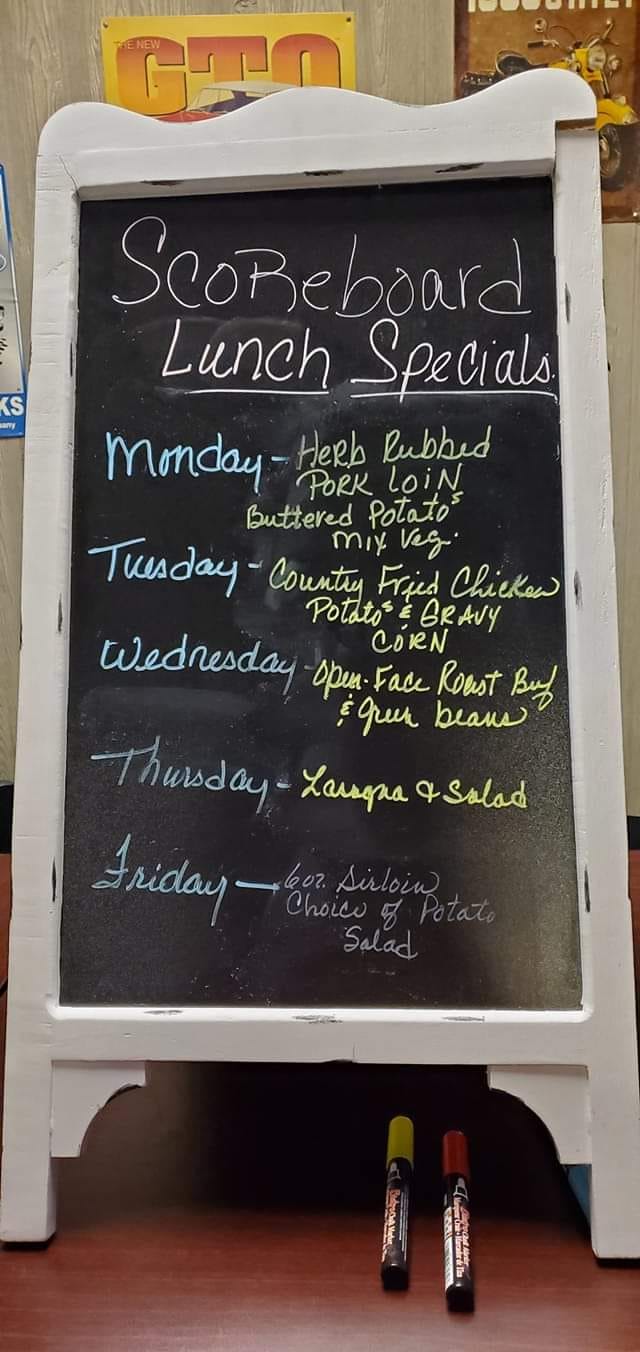 THE NEW
GTO
KS
Scoreboard
Lunch Specials
Monday - Herb Rubbed
Pork Loin
Buttered Potato's
mix veg.
Tuesday - Country Fried Chicken
Potato's & GRAVY
CORN
Wednesday - Open-Face Roast Beef
& green beans
Thursday - Lasagna & Salad
Friday - 6oz. Sirloin
Choice of Potato
Salad